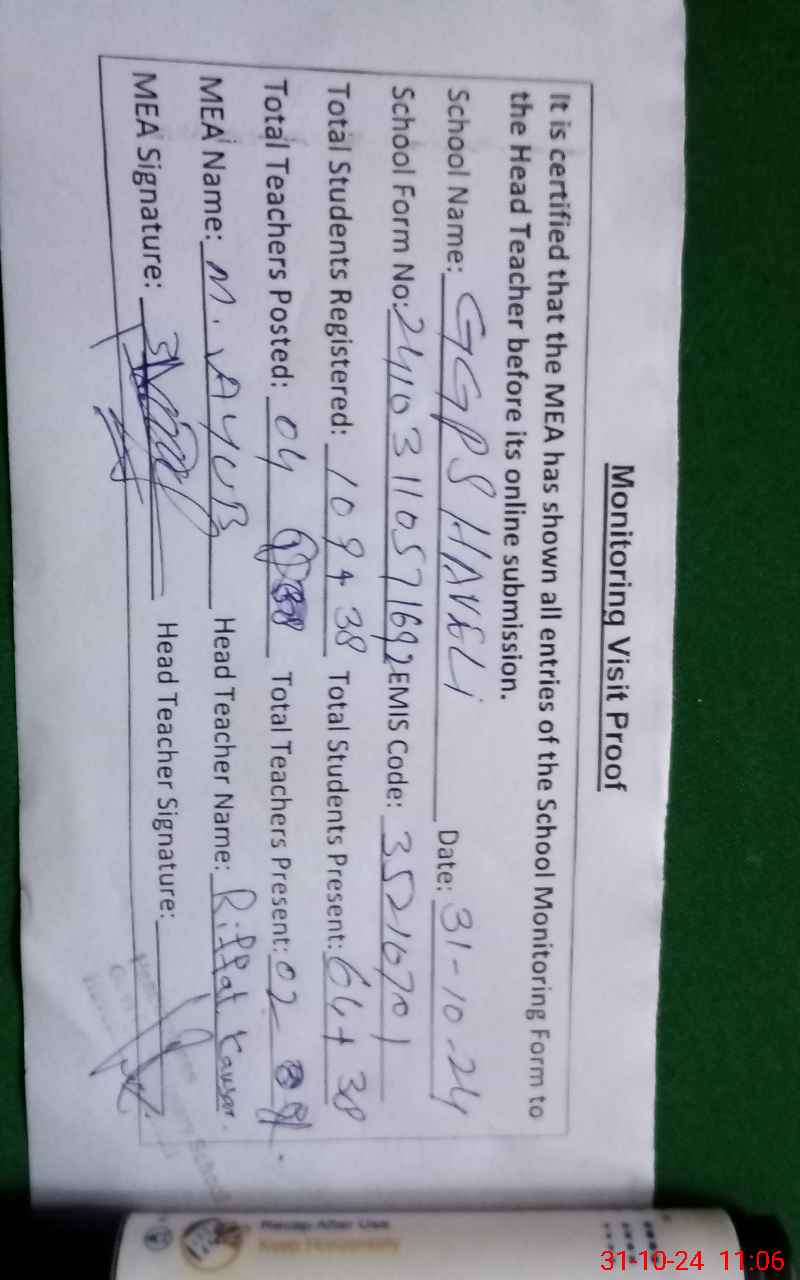 Monitoring Visit Proof
It is certified that the MEA has shown all entries of the School Monitoring Form to
the Head Teacher before its online submission.
School Name: GGPS HAVELI Date: 31-10-24
School Form No: 24103110571692 EMIS Code: 35210701
Total Students Registered: 109+38 Total Students Present: 64+38
Total Teachers Posted: 04 Total Teachers Present: 02
MEA Name: M. AYUB Head Teacher Name: Riffat Kausar.
MEA Signature: Head Teacher Signature:
Recap After Use
Keep Horizontally
31-10-24 11:06